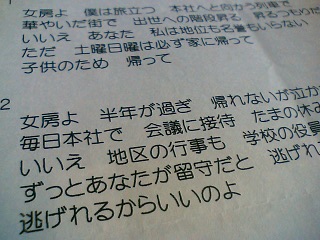 女房よ 僕は旅立つ 本社へと向かう列車で
華やいだ街で 出世への階段昇る 昇るつもりだ
いいえ あなた 私は地位も名誉もいらない
ただ 土曜日曜は必ず家に帰って
子供のため 帰って
2
女房よ 半年が過ぎ 帰れないが泣か
毎日本社で 会議に接待 たまの休み
いいえ 地区の行事も 学校の役員
ずっとあなたが留守だと 逃げれ
逃げれるからいいのよ